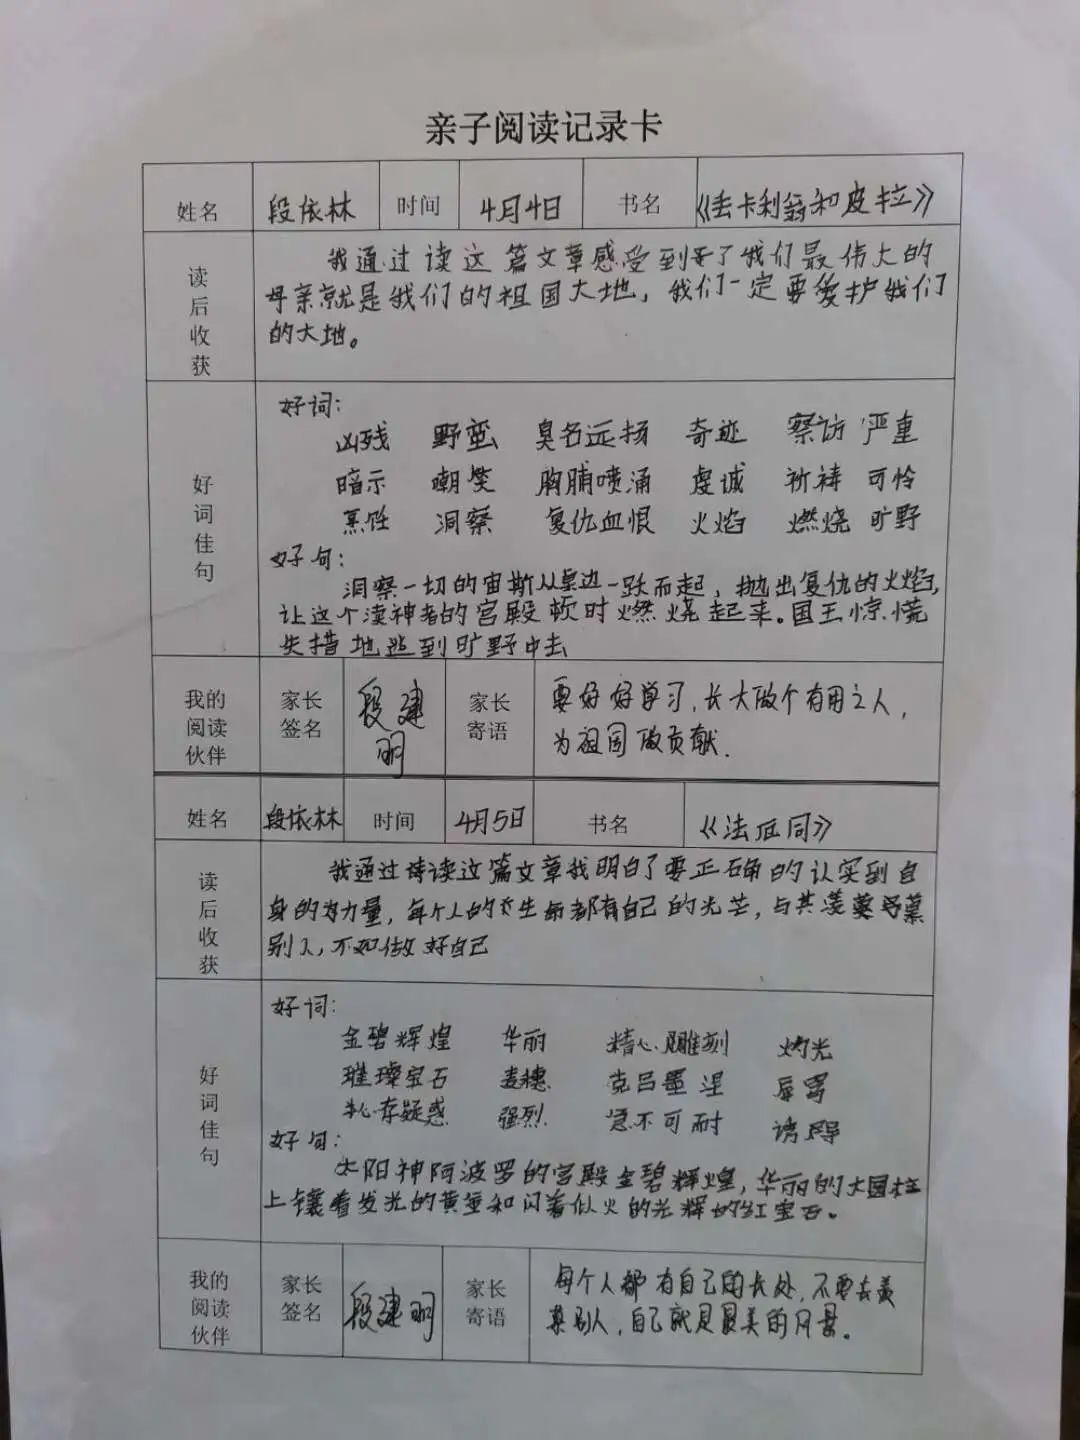 亲子阅读记录卡
姓名 段依林 时间 4月4日 书名 《法卡利翁和皮拉》
读后收获
我通过读这篇文章感受到了我们最伟大的
母亲就是我们的祖国大地，我们一定要爱护我们
的大地。
好词佳句
好词：
凶残 野蛮 臭名远扬 奇迹 察访 严重
暗示 嘲笑 胸脯喷涌 虔诚 祈祷 可怜
烹饪 洞察 复仇血恨 火焰 燃烧 旷野
好句：
洞察一切的宙斯从桌边一跃而起，抛出复仇的火焰，
让这个渎神者的宫殿顿时燃烧起来。国王惊慌
失措地逃到旷野中去
我的阅读伙伴 家长签名 段建明 家长寄语
要好好学习，长大做个有用之人，
为祖国做贡献.
姓名 段依林 时间 4月5日 书名 《法厄同》
读后收获
我通过读这篇文章我明白了要正确的认实到自
身的力量，每个人的生命都有自己的光芒，与其羡慕
别人，不如做好自己
好词佳句
好词：
金碧辉煌 华丽 精心雕刻 灼光
璀璨宝石 麦穗 克吕墨涅 辱骂
心存疑惑 强烈 急不可耐
好句：
太阳神阿波罗的宫殿金碧辉煌，华丽的大圆柱
上镶着发光的黄金和闪着似火的光辉的红宝石。
我的阅读伙伴 家长签名 段建明 家长寄语
每个人都有自己的长处，不要去羡
慕别人，自己就是最美的风景。